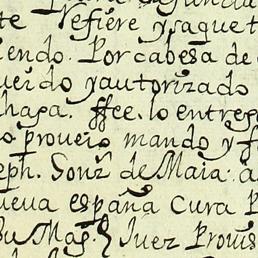 te refiere y saque t
iendo. Por cabesa de
uerdo y autorizado
haga. ffee. lo entreg
o proueio mando y f
eph. Gonz de Maia. a
ueua españa Cura P
Su Mag. Iuez Prouis